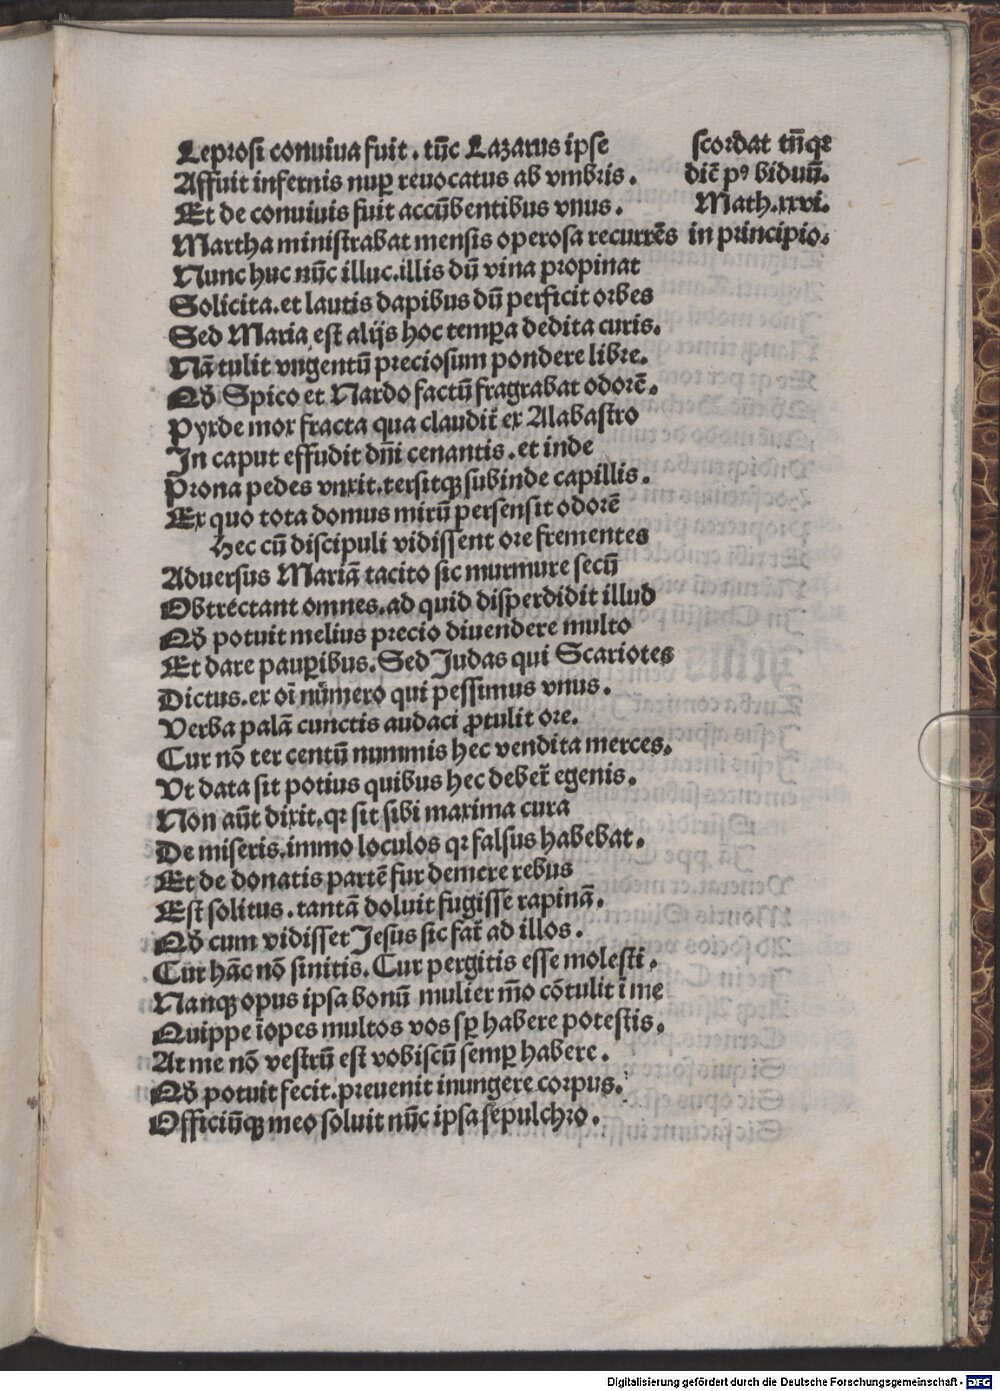 Leprosi conuiua fuit. tūc Lazarus ipse
Affuit infernis nuꝑ reuocatus ab vmbris.
Et de conuiuis fuit accūbentibus vnus.
Martha ministrabat mensis operosa recurrēs
Nunc huc nūc illuc. illis dū vina propinat
Solicita. et lautis dapibus dū perficit orbes
Sed Maria est alijs hoc temꝑa dedita curis.
Nā tulit vngentū preciosum pondere libre.
Qḋ Spico et Nardo factū fragrabat odorē.
Pyrde mox fracta qua claudit̄ ex Alabastro
In caput effudit dn̄i cenantis. et inde
Prona pedes vnxit. tersitqꝫ subinde capillis.
Ex quo tota domus mirū persensit odorē
Hec cū discipuli vidissent ore frementes
Aduersus Mariā tacito sic murmure secū
Obtrectant omnes. ad quid disperdidit illud
Qḋ potuit melius precio diuendere multo
Et dare pauꝑibus. Sed Judas qui Scariotes
Dictus. ex oī nūmero qui pessimus vnus.
Verba palā cunctis audaci ꝓtulit ore.
Cur nō ter centū nummis hec vendita merces.
Vt data sit potius quibus hec deber̄ egenis.
Non aūt dixit. qꝛ sit sibi maxima cura
De miseris. immo loculos qꝛ falsus habebat.
Et de donatis partē fur demere rebus
Est solitus. tantā doluit fugisse rapinā.
Qḋ cum vidisset Jesus sic fat̄ ad illos.
Cur hāc nō sinitis. Cur pergitis esse molesti.
Nanqꝫ opus ipsa bonū mulier mō cōtulit ī me
Quippe īopes multos vos sꝑ habere potestis.
At me nō vestrū est vobiscū semꝑ habere.
Qḋ potuit fecit. preuenit inungere corpus.
Officiūqꝫ meo soluit nūc ipsa sepulchro.
scordat tn̄qꝛ
dic̄ pꝰ biduū.
Math. xxvi.
in principio.
Digitalisierung gefördert durch die Deutsche Forschungsgemeinschaft - DFG